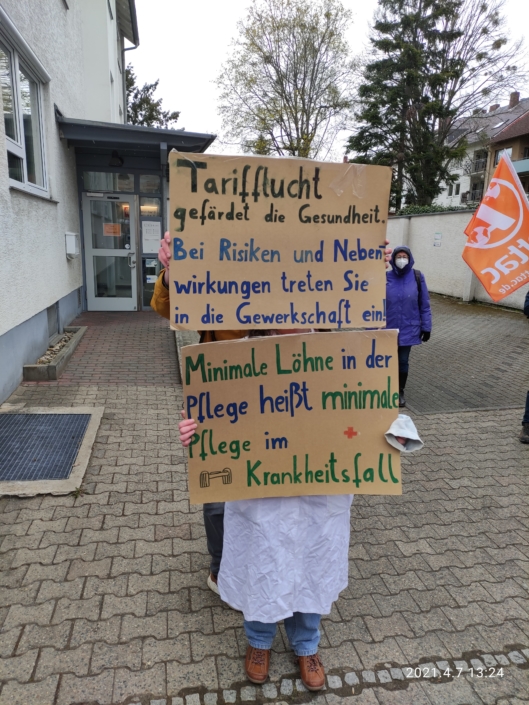 Tarifflucht
gefärdet die Gesundheit.
Bei Risiken und Neben-
wirkungen treten Sie
in die Gewerkschaft ein!
Minimale Löhne in der
Pflege heißt minimale
Pflege im
Krankheitsfall
ttac
tac.de
2021.4.7 13:24